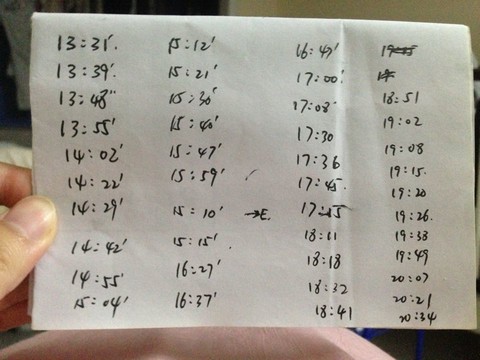 13:31'.
13:39'.
13:48"
13:55'
14:02'
14:22'
14:29'
14:42'
14:55'
15:04'
15:12'
15:21'
15:30'
15:40'
15:47'
15:59'
15:10' →E.
15:15'.
16:27'
16:37'
16:47'
17:00'
17:08'
17:30
17:36
17:45.
17:55
18:11
18:18
18:32
18:41
18:51
19:02
19:08
19:15.
19:20
19:26.
19:38
19:49
20:07
20:21
20:34